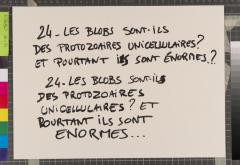 24_LES BLOBS SONT-ILS
DES PROTOZOAIRES UNICELLULAIRES?
ET POURTANT ILS SONT ÉNORMES..?
24_LES BLOBS SONT-ILS
DES PROTOZOAIRES
UNICELLULAIRES? ET
POURTANT ILS SONT
ÉNORMES...